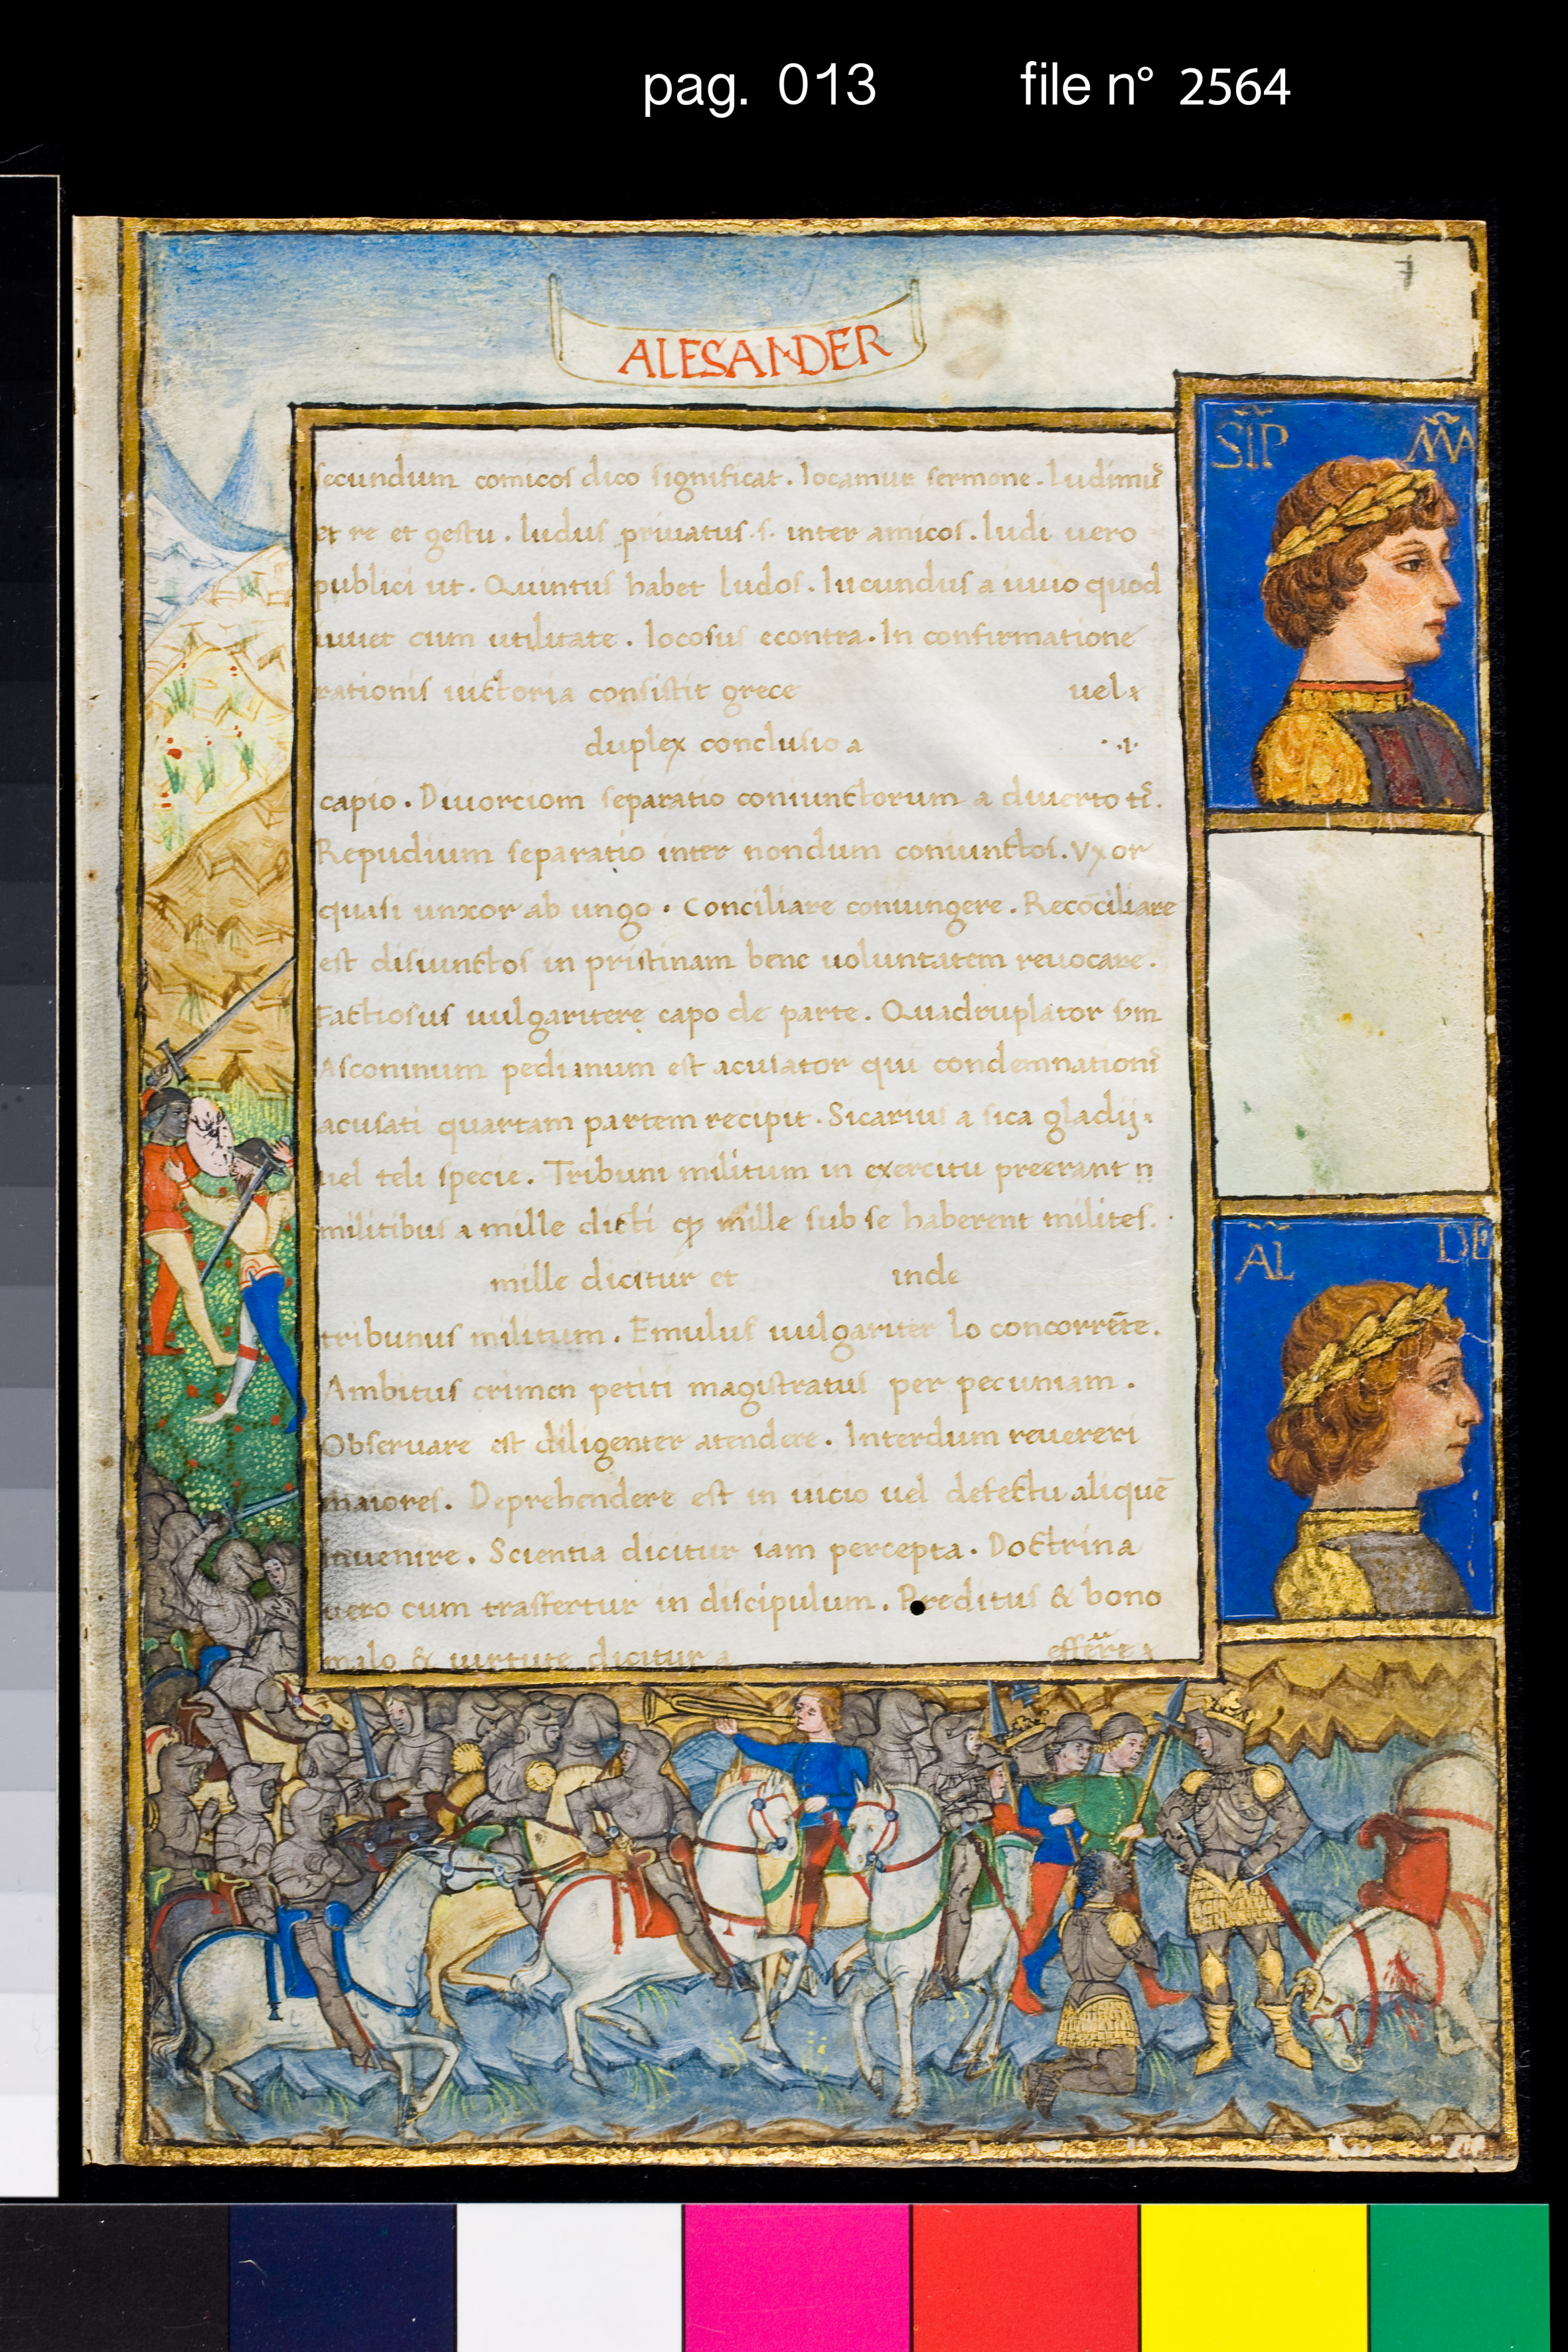 pag. 013 file n° 2564
7
ALESANDER
SIP MA
secundum comicos dico significat. Iocamur sermone. Ludimur
et re et gestu. ludus priuatus .s. inter amicos. ludi uero
publici ut. Quintus habet ludos. Iucundus a iuuo quod
iuuet cum utilitate. Iocosus econtra. In confirmatione
rationis uictoria consistit grece uel
duplex conclusio a .i.
capio. Diuorciom separatio coniunctorum a diuerto
Repudium separatio inter nondum coniunctos. Vxor
quasi unxor ab ungo. Conciliare coniungere. Recōciliare
est disiunctos in pristinam bene uoluntatem reuocare.
Factiosus uulgaritere capo de parte. Quadruplator
Asconinum pedianum est acusator qui condemnationis
acusati quartam partem recipit. Sicarius a sica gladij
uel teli specie. Tribuni militum in exercitu preerant
militibus a mille dicti mille sub se haberent milites.
mille dicitur et inde
tribunus militum. Emulus uulgariter lo concorrēte.
Ambitus crimen petiti magistratus per pecuniam.
Obseruare est diligenter atendere. Interdum reuereri
maiores. Deprehendere est in uicio uel defectu aliquē
inuenire. Scientia dicitur iam percepta. Doctrina
uero cum trasfertur in discipulum. Preditus & bono
malo & uirtute dicitur a efferre
AL DE